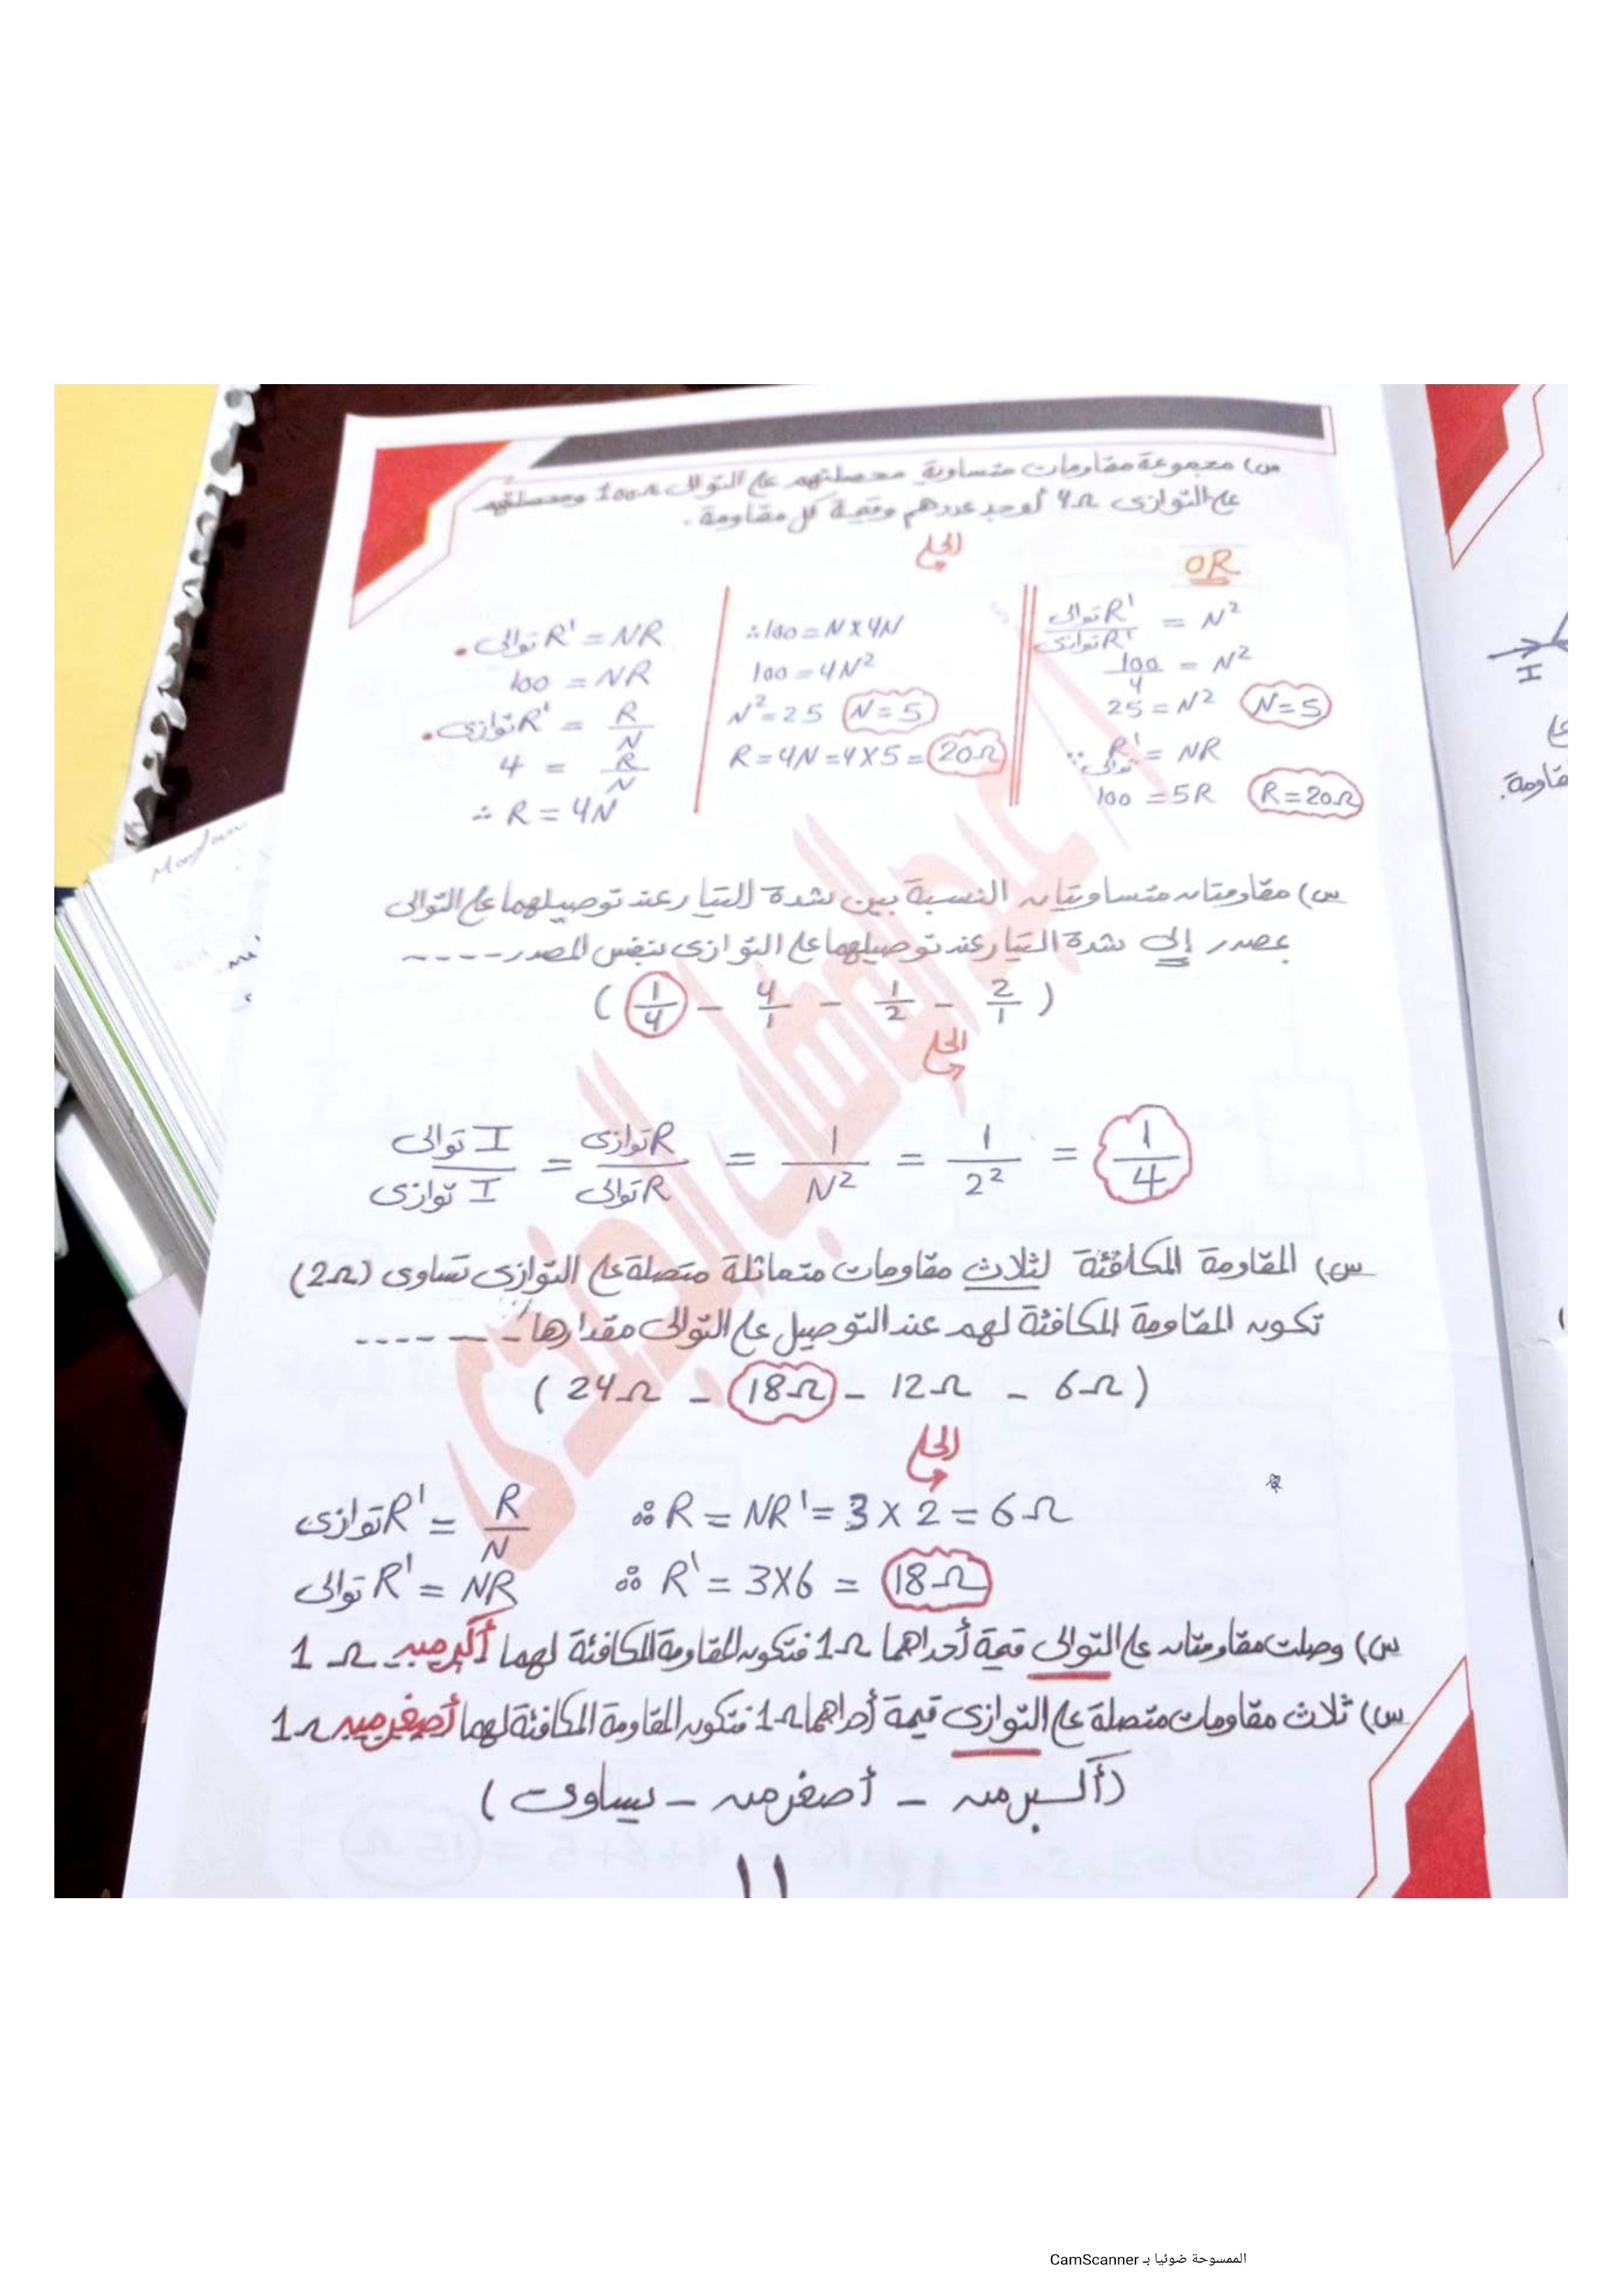 س) مجموعة مقاومات متساوية محصلتهم على التوالى 100Ω ومحصلتهم
على التوازى 4Ω أوجد عددهم وقيمة كل مقاومة.
الحل
توالى R' = NR
100 = NR
توازى R' = R/N
4 = R/N
∴ R = 4N
∴ 100 = N X 4N
100 = 4N²
N² = 25 N = 5
R = 4N = 4X5 = 20Ω
OR
توالى R' / توازى R' = N²
100/4 = N²
25 = N² N = 5
∵ توالى R' = NR
100 = 5R R = 20Ω
س) مقاومتان متساويتان النسبة بين شدة التيار عند توصيلهما على التوالى
بمصدر إلى شدة التيار عند توصيلهما على التوازى بنفس المصدر ----
( 1/4 - 4/1 - 1/2 - 2/1 )
الحل
توالى I / توازى I = توازى R / توالى R = 1/N² = 1/2² = 1/4
س) المقاومة المكافئة لثلاث مقاومات متماثلة متصلة على التوازى تساوى (2Ω)
تكون المقاومة المكافئة لهم عند التوصيل على التوالى مقدارها ------
( 24Ω - 18Ω - 12Ω - 6Ω )
الحل
توازى R' = R/N ∴ R = NR' = 3 X 2 = 6Ω
توالى R' = NR ∴ R' = 3X6 = 18Ω
س) وصلت مقاومتان على التوالى قيمة أحداهما 1Ω فتكون المقاومة المكافئة لهما أكبر من 1Ω
س) ثلاث مقاومات متصلة على التوازى قيمة أحداهما 1Ω فتكون المقاومة المكافئة لهما أصغر من 1Ω
(أكبر من - أصغر من - يساوى)
١١
I
على
قاومة.
الممسوحة ضوئيا بـ CamScanner